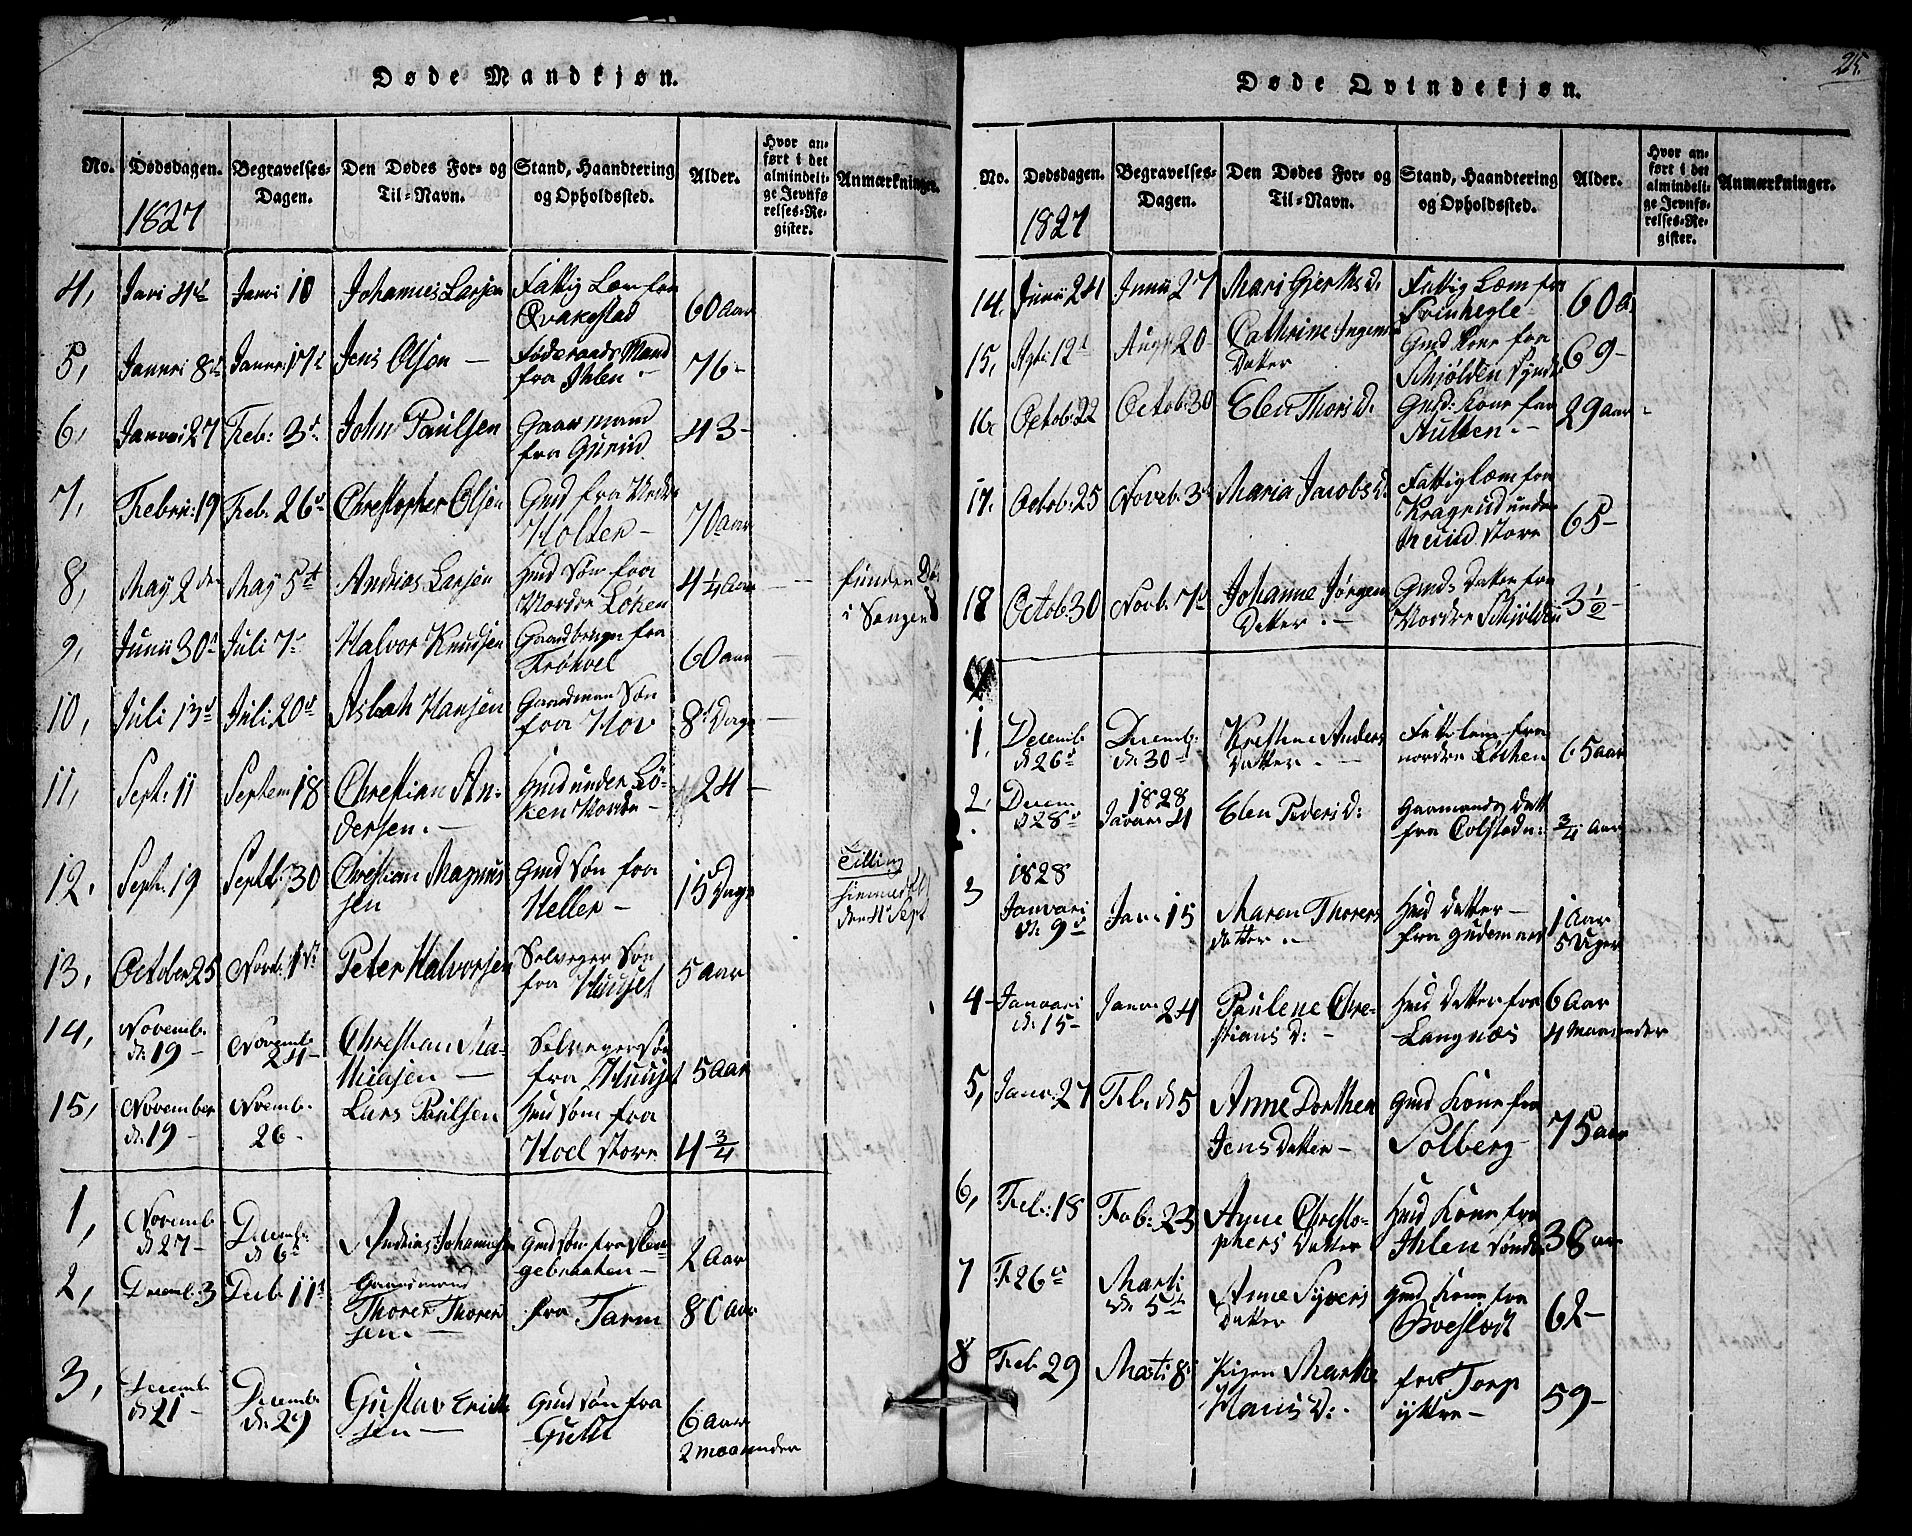 Døde Mandkjøn.
No. Dødsdagen. Begravelses-Dagen. Den Dødes For- og Til-Navn. Stand, Haandtering og Opholdssted. Alder. Hvor anført i det almindelige Jevnførelses-Register. Anmærkninger.
1827
4, Janvi 10 Johannes Larsen Fattig Læm fra
Qvakestad 60 Aar
5, Januri 8d Januri 17d Jens Olsen — Føderaads Mand
fra Ihlen 76-
6, Januri 27 Feb: 3d John Paulsen Gaarmand
fra 43-
7, Febru: 19 Feb. 26d Christopher Olsen Gmd fra Neder
Holter — 70 aar
8, May 2den May 5t Andrias Larsen Hmd Søn fra
Nordre Løken 4 1/4 Aar funden Død
i Sengen
9, Junii 30d Juli 7d Halvor Knudsen Gaardbruger fra
60 aar
10, Juli 13d Juli 20d Hansen Gaardman Søn
fra Hov 8d Dage
11, Sept: 11 Septem 18 Christian An-
dersen. — Gmd under Lø-
ken Nordre — 24 -
12. Sept: 19 Septb: 30 Christian Magnus
sen Gmd Søn fra
Heller — 15 Dage
13, October 25 Novb: 1st Peter Halvorsen Selveger Søn
fra Huuset 5 Aar
14, Novemb.
d. 19 — Novemb.
24 — Christian Ma-
thiasen — Selveger søn
fra Huuset 5 Aar
15, November
d. 19 — Novemb.
26 - Lars Paulsen Hmd søn fra
Hoel Store 4 3/4
1, Novemb
d 27 — Decemb.
d. 6t Andrias Johannesen Gmd søn fra
gebraaten — 2 Aar
2, Decemb: 3 Decb. 11t Gaardmand
Thorer Thorer
sen — fra Tarm 80 Aar
3, Decemb.
d. 21 — Decemb.
de 29 Gustav Erich
sen — Gmd søn fra
6 Aar
2 maaneder
Døde Qvindekjøn.
25.
No. Dødsdagen. Begravelses-Dagen. Den Dødes For- og Til-Navn. Stand, Haandtering og Opholdssted. Alder. Hvor anført i det almindelige Jevnførelses-Register. Anmærkninger.
1827
14. Junii 24 Junii 27 Mari D. Fattig Læm fra
60 a
15, 12t Aug 20 Cathrine Ingens
Datter Gmd Kone fra
Schjølden Synd: 69 -
16, Octob: 22 Octob: 30 Elen Thors D. Gmd: Kone fra
29 aar
17. Octob: 25 Noveb. 3d Maria Jacobs D. Fattig læm fra
Kragerud under
Store 65 -
18 Octob 30 Novb. 7d Johanne Jørgen
Datter. — Gmds Datter fra
Nordre Schjølden 3 1/2
1. Decemb
d. 26d Decemb.
de 30 — Kristine Anders
datter. — Fatti lem fra
nordre Løchen 65 aar
2. Decem
d 28d 1828
Elen Peders D: Gaarmands datt
fra 3/4 Aar
3 1828
Januari
d. 9d Janv: 15 Maren Thorers
datter .— Hmd datter —
fra 1 Aar
5 Uger
4- Januari
d. 15 — Janv: 24 Paulene Chre-
stians D: — Hmd datter fra
Langnæs 6 Aar
4 Maaneder
5, Janv: 27 Feb. d 5 Anne Dorthea
Jens datter — Gmd Kone fra
Solberg — 75 aar
6, Feb: 18 Feb: 23 Anne Christo-
phers Datter Hmd Kone fra
Ihlen Søndr 38 aar
7 F 26d Marti
d. 5t Anne Syvers
Datter Gmd Kone fra
62 —
8 Feb 29 Marti 8: Pigen Marthe
Hans D: . fra Torp
yttre — 59 —